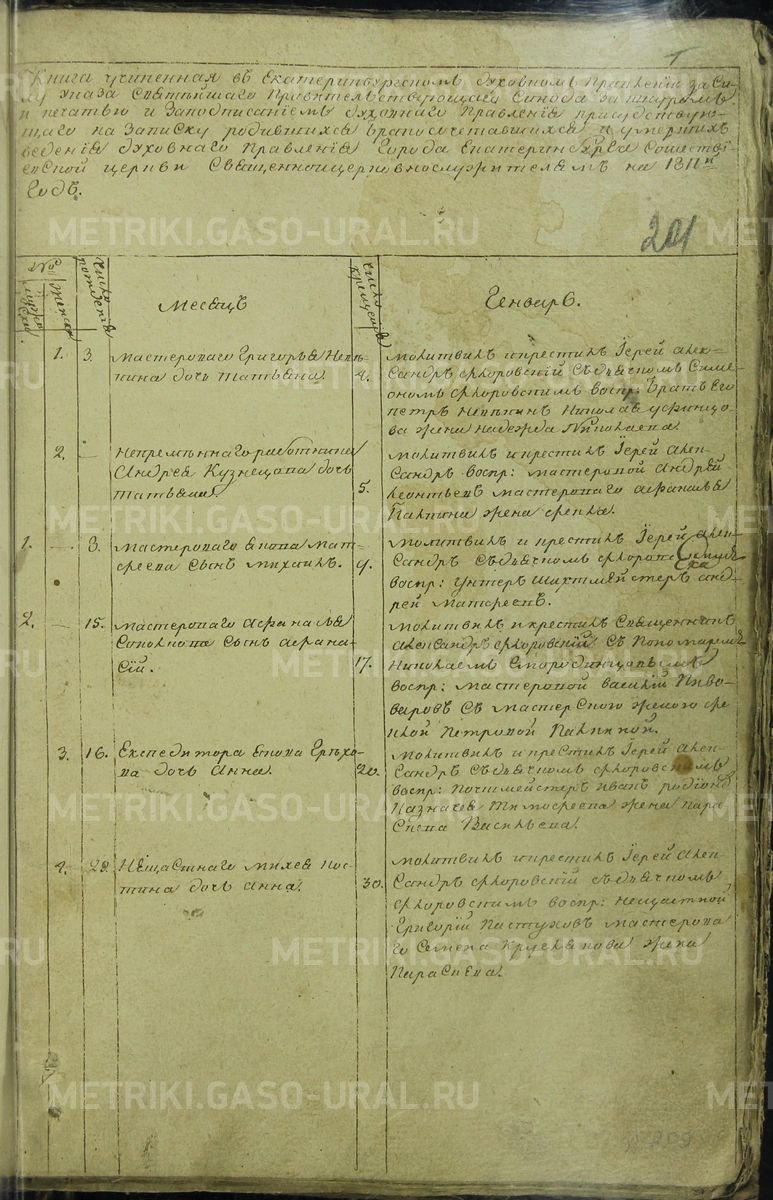 Книга учиненная въ Екатеринбургскомъ Духовномъ Правленіи за си
лу Указа Святѣйшаго Правительствующаго Синода за шнуромъ
и печатью и Заподписаніемъ духовнаго Правленія присудствую
щаго на Записку родившихся бракосочетавшихся и умершихъ
веденія духовнаго Правленія Города Екатеринбурга Сошестві
евской церкви Священноцерковнослужителямъ на 1811й
Годъ.
201
№
мужеска
женска
число рожденія
Месяцъ
число крещенія
Генварь.
1. 3. мастероваго Григорья
дочь Татьяна
4. молитвилъ и крестилъ Іерей Алек
сандръ Флоровскій съ дьячкомъ Симе
ономъ Флоровскимъ воспр: братъ Его
петръ
жена надежда Николаева
2. — Непремѣннаго работника
Андрея Кузнецова дочь
Татьяна
5. молитвилъ и крестилъ Іерей Алек
сандръ воспр: мастеровой Андрей
Леонтьевъ мастероваго Афанасья
жена
1. — 3. мастероваго Якова Мат
феева сынъ михаилъ.
9. молитвилъ и крестилъ Іерей Алек
сандръ съ дьячкомъ
воспр: Унтеръ Шихтмейстеръ Анд
рей Матфеевъ.
2. — 15. мастероваго Афанасья
Соколова сынъ Афана
сій.
17. молитвилъ и крестилъ Священникъ
Александръ Флоровскій съ Пономаремъ
Николаемъ Смородинцовымъ
воспр: мастеровой василій Пиво
варовъ съ мастерскою женою
Петровой
3. 16. Екзпедитора Якова Грѣхо
ва дочь Анна.
20. молитвилъ и крестилъ Іерей Алек
сандръ съ дьячкомъ Флоровскимъ
воспр: Почтмейстеръ Иванъ
Казначея Тимофеева жена Пара
скева Васильева.
4. 29. Нещастнаго михея Кос
тина дочь Анна.
30. молитвилъ и крестилъ Іерей Алек
сандръ Флоровскій съ дьячкомъ
Флоровскимъ воспр: Нещастной
Григорій Пастуховъ мастерова
го Семена жена
Параскева.
METRIKI.GASO-URAL.RU